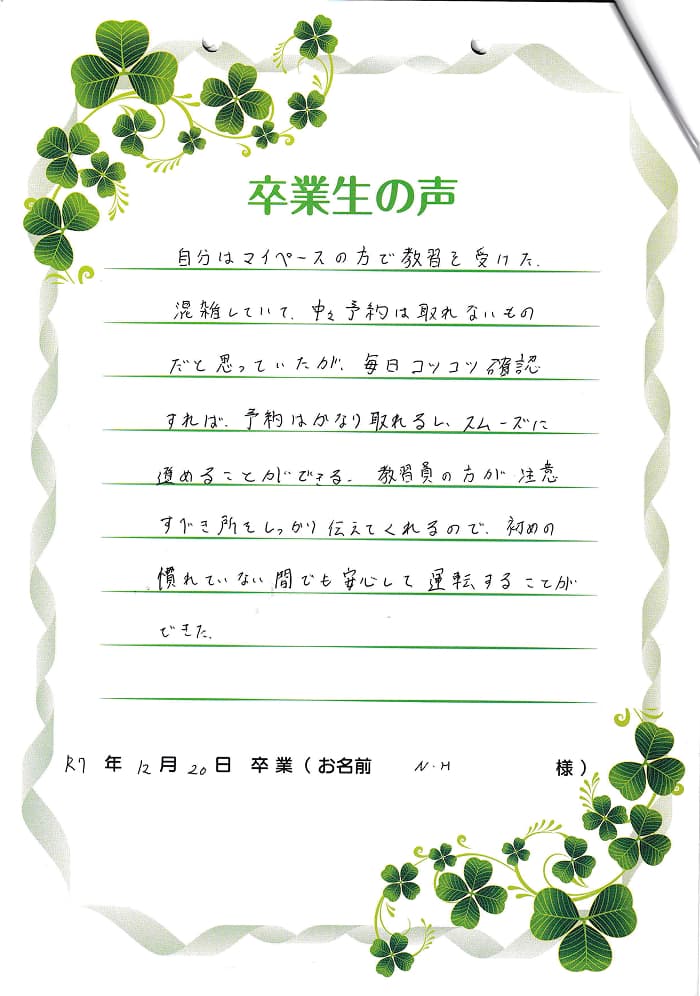 卒業生の声
自分はマイペースの方で教習を受けた.
混雑していて、中々予約は取れないもの
だと思っていたが、毎日コツコツ確認
すれば、予約はかなり取れるし、スムーズに
進めることができる。教習員の方が注意
すべき所をしっかり伝えてくれるので、初めの
慣れていない間でも安心して運転することが
できた.
R7年12月20日 卒業(お名前 N.H 様)